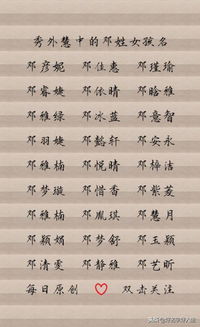 秀外慧中的邓姓女孩名
邓彦妮 邓佳惠 邓瑾瑜
邓睿婕 邓依晴 邓晗雅
邓雅绿 邓冰蓝 邓意智
邓羽婕 邓懿轩 邓安永
邓雅楠 邓悦晴 邓梓洁
邓梦璇 邓惜香 邓紫菱
邓雅楠 邓胤琪 邓慧月
邓颖娟 邓梦舒 邓玉颖
邓清雯 邓静雅 邓艺昕
每日原创 双击关注